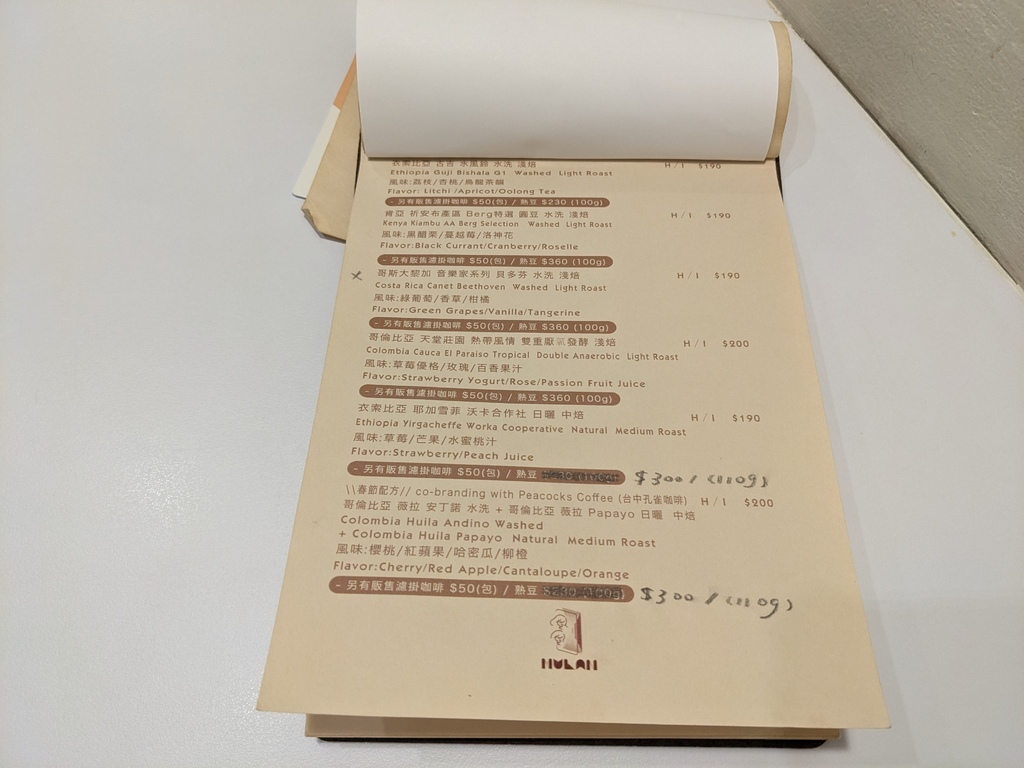 衣索比亞 古吉 水風鈴 水洗 淺焙 H / I $190
Ethiopia Guji Bishala G1 Washed Light Roast
風味:荔枝/杏桃/烏龍茶韻
Flavor: Litchi /Apricot/Oolong Tea
- 另有販售濾掛咖啡 $50(包) / 熟豆 $230 (100g)
肯亞 祈安布產區 Berg特選 圓豆 水洗 淺焙 H / I $190
Kenya Kiambu AA Berg Selection Washed Light Roast
風味:黑醋栗/蔓越莓/洛神花
Flavor:Black Currant/Cranberry/Roselle
- 另有販售濾掛咖啡 $50(包) / 熟豆 $360 (100g)
× 哥斯大黎加 音樂家系列 貝多芬 水洗 淺焙 H / I $190
Costa Rica Canet Beethoven Washed Light Roast
風味:綠葡萄/香草/柑橘
Flavor:Green Grapes/Vanilla/Tangerine
- 另有販售濾掛咖啡 $50(包) / 熟豆 $360 (100g)
哥倫比亞 天堂莊園 熱帶風情 雙重厭氣發酵 淺焙 H / I $200
Colombia Cauca El Paraiso Tropical Double Anaerobic Light Roast
風味:草莓優格/玫瑰/百香果汁
Flavor:Strawberry Yogurt/Rose/Passion Fruit Juice
- 另有販售濾掛咖啡 $50(包) / 熟豆 $360 (100g)
衣索比亞 耶加雪菲 沃卡合作社 日曬 中焙 H / I $190
Ethiopia Yirgacheffe Worka Cooperative Natural Medium Roast
風味:草莓/芒果/水蜜桃汁
Flavor:Strawberry/Peach Juice
- 另有販售濾掛咖啡 $50(包) / 熟豆 $300 / (110g)
\\春節配方// co-branding with Peacocks Coffee (台中孔雀咖啡) H / I $200
哥倫比亞 薇拉 安丁諾 水洗 + 哥倫比亞 薇拉 Papayo 日曬 中焙
Colombia Huila Andino Washed
+ Colombia Huila Papayo Natural Medium Roast
風味:櫻桃/紅蘋果/哈密瓜/柳橙
Flavor:Cherry/Red Apple/Cantaloupe/Orange
- 另有販售濾掛咖啡 $50(包) / 熟豆 $300 / (110g)
HULAN